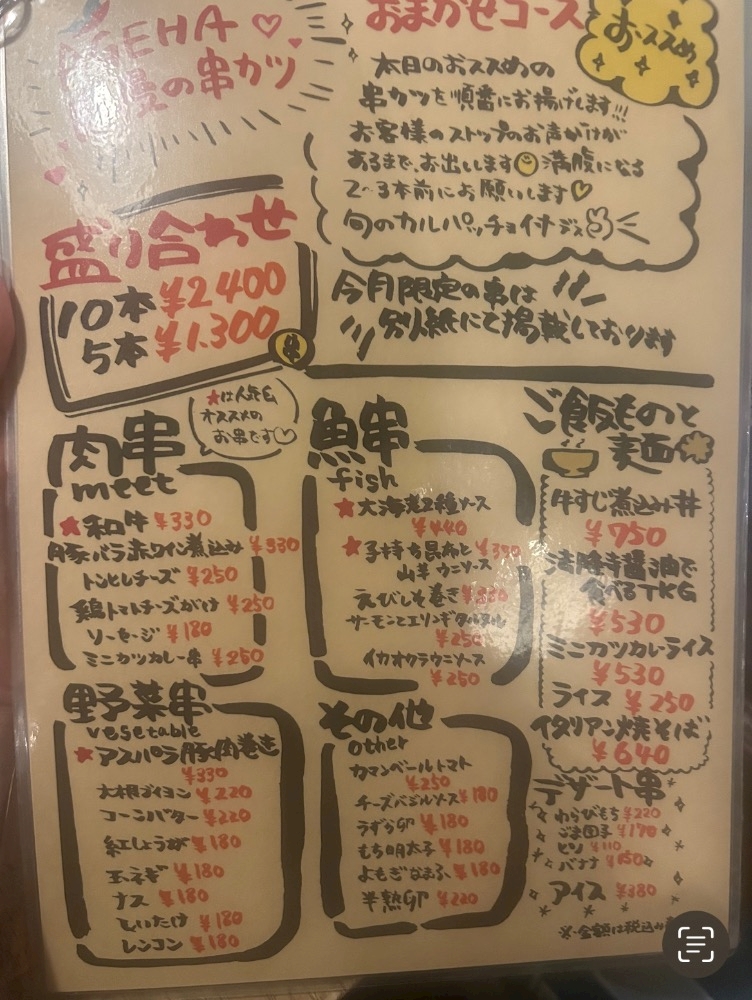 EHA
の串カツ
おまかせコース
おススめ
本日のおススめの
串カツを順番にお揚げします!!!
お客様のストップのお声がけが
あるまで、お出しします 満腹になる
2~3本前にお願いします♡
旬のカルパッチョイナジス
盛り合わせ
10本 ¥2400
5本 ¥1.300
今月限定の串は
別紙にて掲載しております
★は人気&
オススメの
お串です♡
肉串
meet
★和牛 ¥330
豚バラ赤ワイン煮込み ¥330
トンヒレチーズ ¥250
鶏トマトチーズがけ ¥250
ソーセージ ¥180
ミニカツカレー串 ¥250
魚串
fish
★大海老2種ソース
¥440
★子持ち昆布と
山芋 ウニソース
えびしそ巻き
サーモンとエリンギタルタル
¥250
イカオクラウニソース
¥250
ご飯ものと
麺
牛すじ煮込み丼
¥750
醤油で
食べるTKG
¥530
ミニカツカレーライス
¥530
ライス ¥250
イタリアン焼そば
¥640
野菜串
vesetable
★アスパラ豚肉巻き
¥330
大根ブイヨン ¥220
コーンバター ¥220
紅しょうが ¥180
玉ネギ ¥180
ナス ¥180
しいたけ ¥180
レンコン ¥180
その他
other
カマンベールトマト
¥250
チーズバジルソース ¥180
うずら卵 ¥180
もち明太子 ¥180
よもぎなまふ ¥180
半熟卵 ¥220
デザート串
わらびもち ¥220
ごま団子 ¥170
¥110
バナナ
アイス ¥380
※金額は税込み